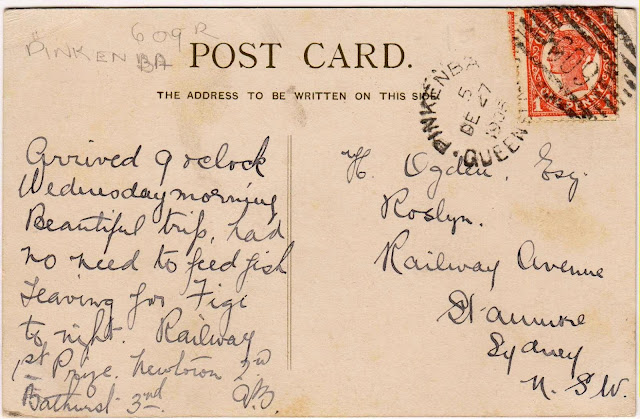 609 R
PINKENBA
POST CARD.
THE ADDRESS TO BE WRITTEN ON THIS SIDE.
PINKENBA
5
DE 27
QUEENS
Arrived 9 oclock
Wednesday morning
Beautiful trip, had
no need to feed fish
Leaving for Figi
to night. Railway
1st Prize. Newtown 2nd
Bathurst 3rd.
H. Ogden, Esq.
Roslyn.
Railway Avenue
Stanmore
Sydney
N.S.W.